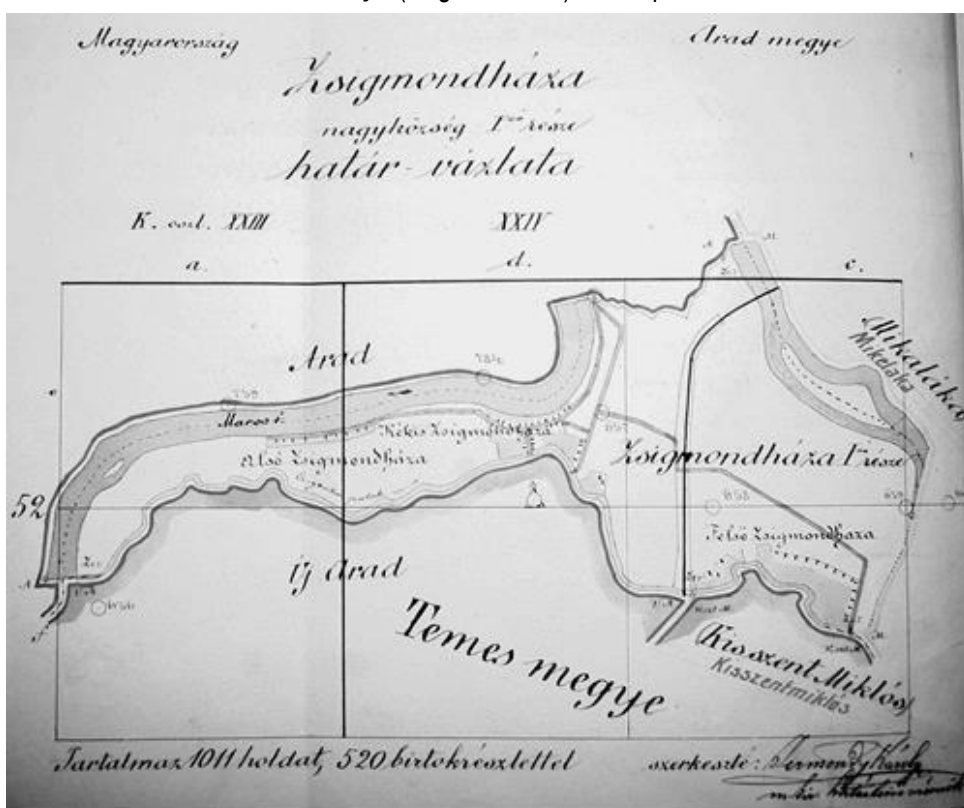 Magyarország
Arad megye
Zsigmondháza
nagyközség I ső része
határ-vázlata
K. oszl. XXIII
XXIV
a.
d.
c.
Arad
Maros f.
Mikaláka
Mikelaka
Kékis Zsigmondháza
Alsó Zsigmondháza
Zsigmondháza I ső része
52
858
Felső Zsigmondháza
Új Arad
Temes megye
(Kisszent Miklós)
Kisszentmiklós
Tartalmaz 1011 holdat, 520 birtokrészlettel
szerkeszté: